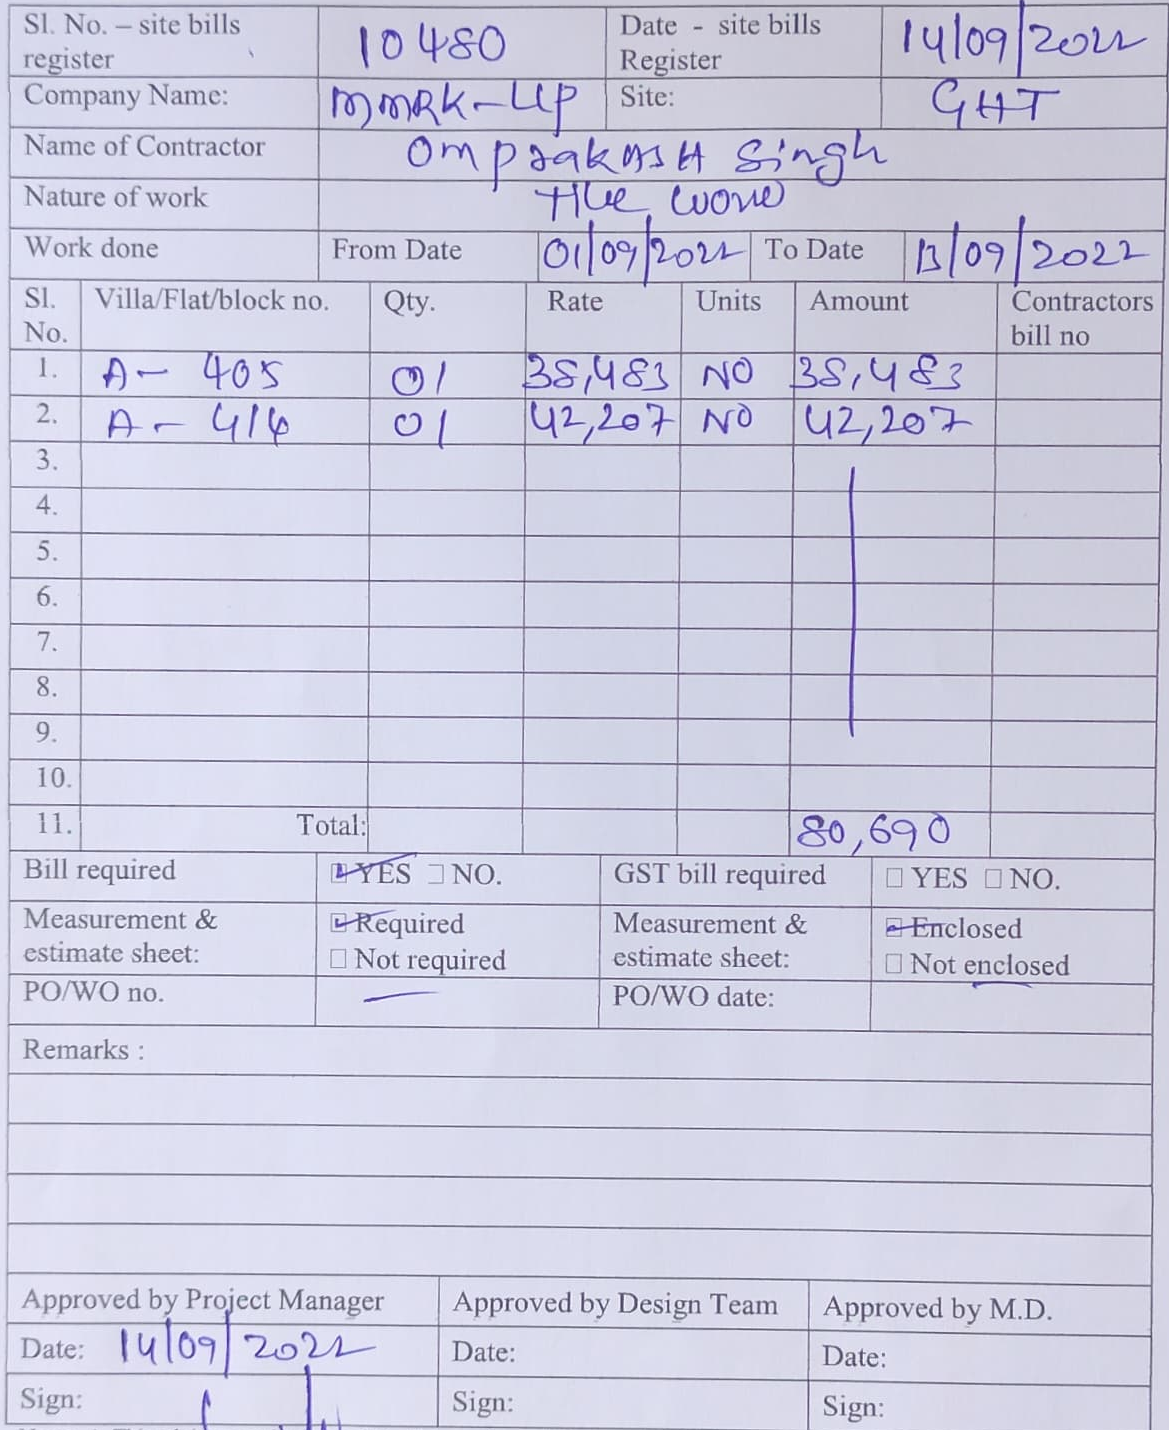 Sl. No. – site bills register 10480 Date - site bills Register 14/09/2022
Company Name: MMRK-LLP Site: GHT
Name of Contractor Omprakash Singh
Nature of work Tile work
Work done From Date 01/09/2022 To Date 13/09/2022
Sl. No. Villa/Flat/block no. Qty. Rate Units Amount Contractors bill no
1. A- 405 01 38,483 NO 38,483
2. A- 414 01 42,207 NO 42,207
3.
4.
5.
6.
7.
8.
9.
10.
11. Total: 80,690
Bill required YES NO. GST bill required YES NO.
Measurement & estimate sheet: Required Not required Measurement & estimate sheet: Enclosed Not enclosed
PO/WO no. — PO/WO date:
Remarks :
Approved by Project Manager Approved by Design Team Approved by M.D.
Date: 14/09/2022 Date: Date:
Sign: Sign: Sign: